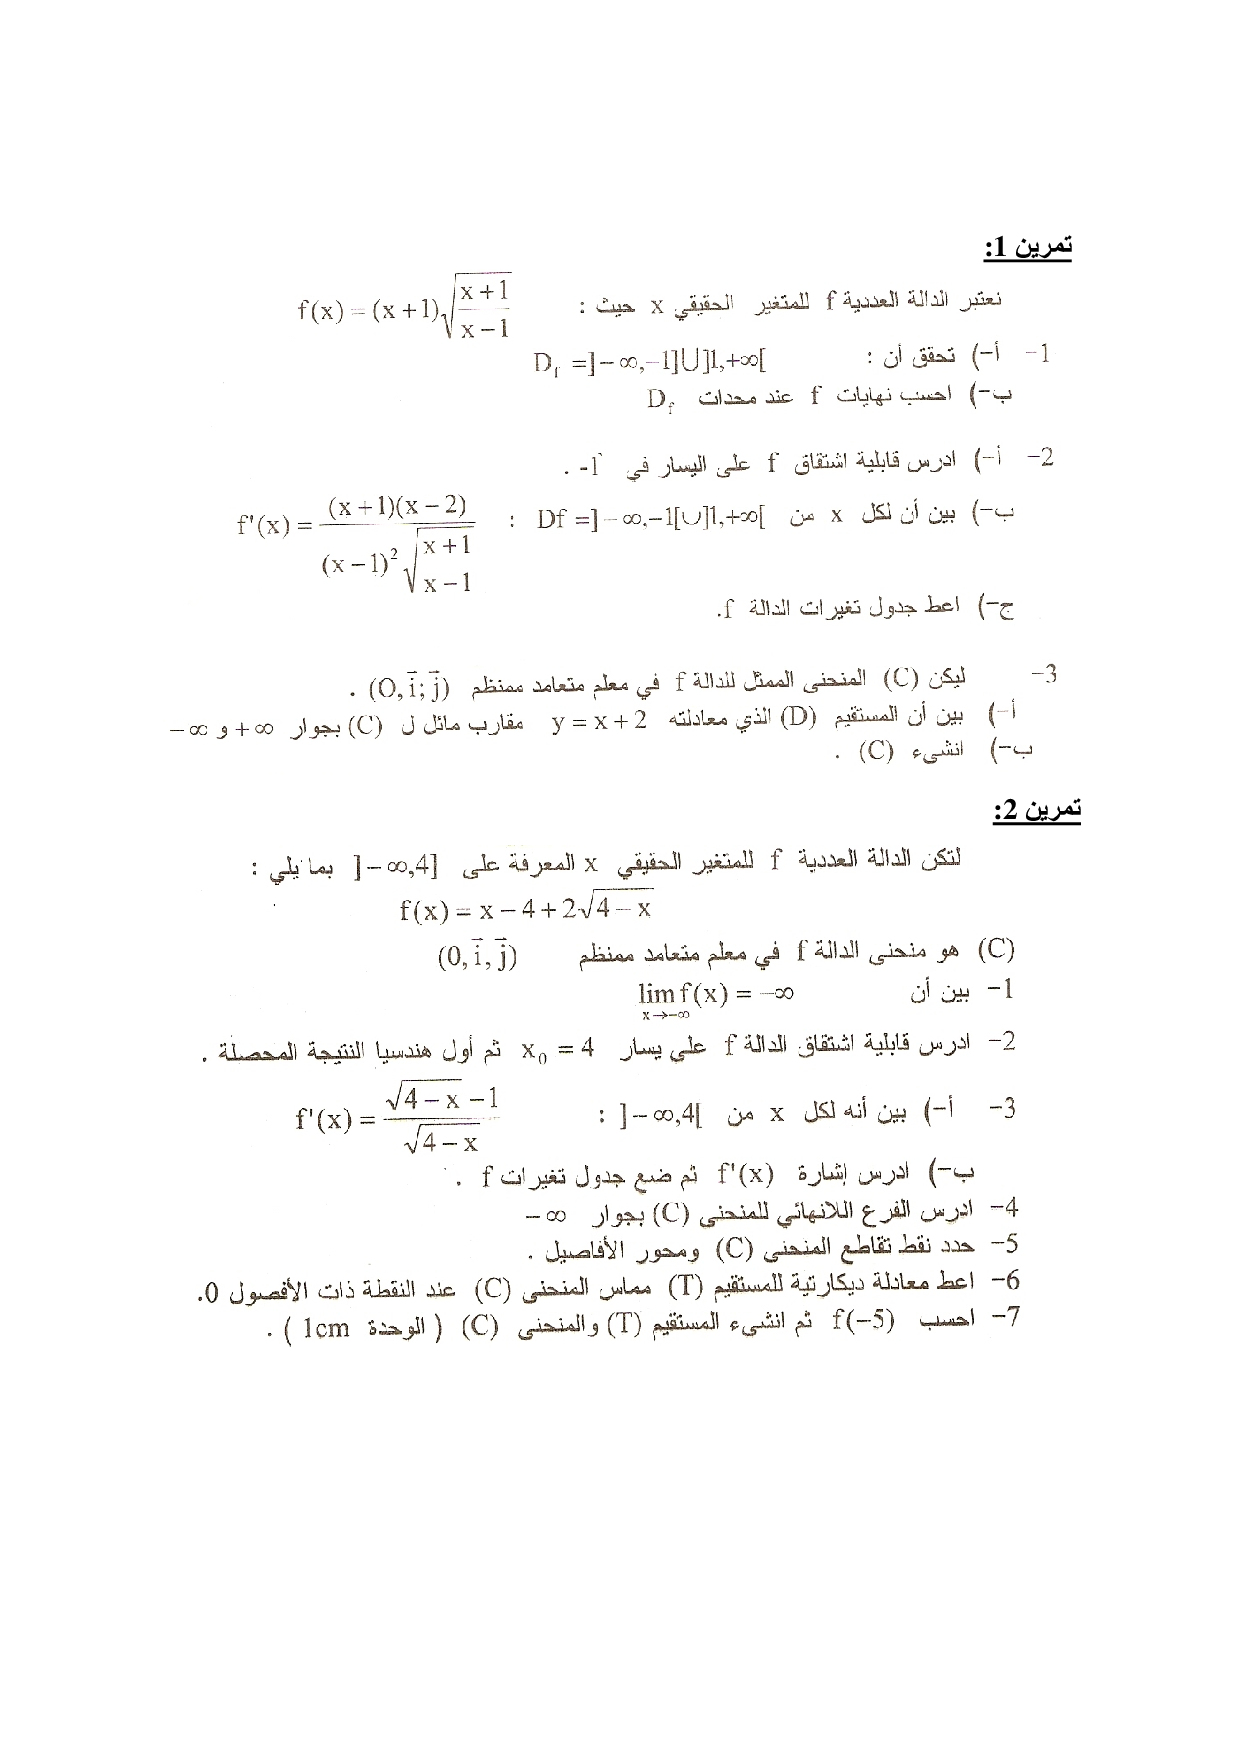 تمرين 1:
نعتبر الدالة العددية f للمتغير الحقيقي x حيث : f(x) = (x+1)√((x+1)/(x−1))
1- أ-) تحقق أن : D_f =]−∞,−1]∪]1,+∞[
ب-) احسب نهايات f عند محدات D_f
2- أ-) ادرس قابلية اشتقاق f على اليسار في 1- .
ب-) بين أن لكل x من Df =]−∞,−1[∪]1,+∞[ : f'(x) = ((x+1)(x−2))/((x−1)²√((x+1)/(x−1)))
ج-) اعط جدول تغيرات الدالة f.
3- ليكن (C) المنحنى الممثل للدالة f في معلم متعامد ممنظم (O,i⃗;j⃗) .
أ-) بين أن المستقيم (D) الذي معادلته y = x+2 مقارب مائل ل (C) بجوار +∞ و −∞
ب-) انشىء (C) .
تمرين 2:
لتكن الدالة العددية f للمتغير الحقيقي x المعرفة على ]−∞,4] بما يلي :
f(x) = x−4+2√(4−x)
(C) هو منحنى الدالة f في معلم متعامد ممنظم (0,i⃗,j⃗)
1- بين أن lim_{x→−∞} f(x) = −∞
2- ادرس قابلية اشتقاق الدالة f على يسار x₀ = 4 ثم أول هندسيا النتيجة المحصلة .
3- أ-) بين أنه لكل x من ]−∞,4[ : f'(x) = (√(4−x) −1)/√(4−x)
ب-) ادرس إشارة f'(x) ثم ضع جدول تغيرات f .
4- ادرس الفرع اللانهائي للمنحنى (C) بجوار −∞
5- حدد نقط تقاطع المنحنى (C) ومحور الأفاصيل .
6- اعط معادلة ديكارتية للمستقيم (T) مماس المنحنى (C) عند النقطة ذات الأفصول 0.
7- احسب f(−5) ثم انشىء المستقيم (T) والمنحنى (C) ( الوحدة 1cm ) .